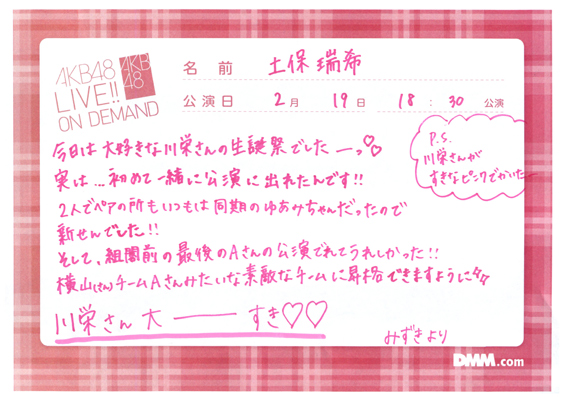 AKB48
LIVE!!
ON DEMAND
AKB
48
名前 土保瑞希
公演日 2月 19日 18:30 公演
P.S.
川栄さんが
すきなピンクでかいたー
今日は大好きな川栄さんの生誕祭でしたーっ♡♡
実は…初めて一緒に公演に出れたんです!!
2人でペアの所もいつもは同期のゆあみちゃんだったので
新せんでした!!
そして、組閣前の最後のAさんの公演でれてうれしかった!!
横山(さん)チームAさんみたいな素敵なチームに昇格できますように
川栄さん大――すき♡♡
みずきより
DMM.com